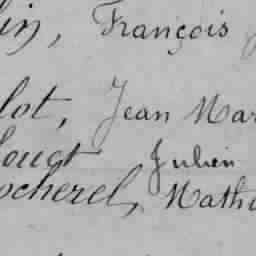 lin, François
lot, Jean Mar
louet Julien
ocherel, Math